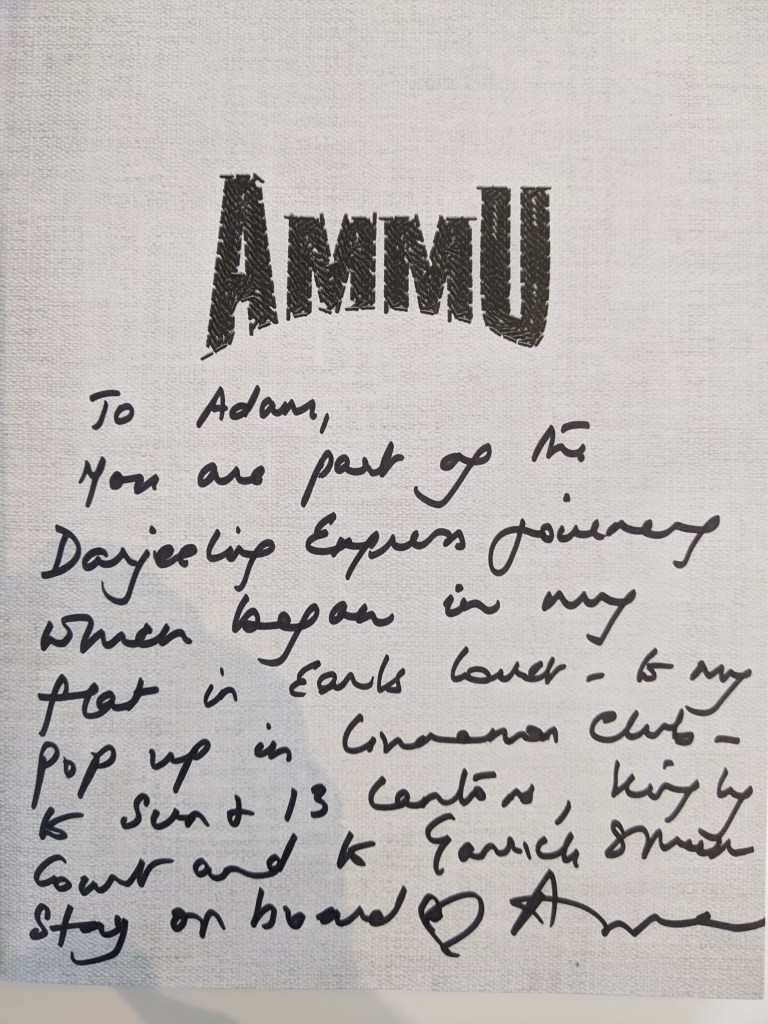 AMMU
To Adam,
You are part of the
Darjeeling Express journey
which began in my
flat in Earls Court - to my
pop up in Cinnamon Club -
to Sun & 13 Cantons, Kingly
Court and to Garrick Street
Stay on board ♡ Asma